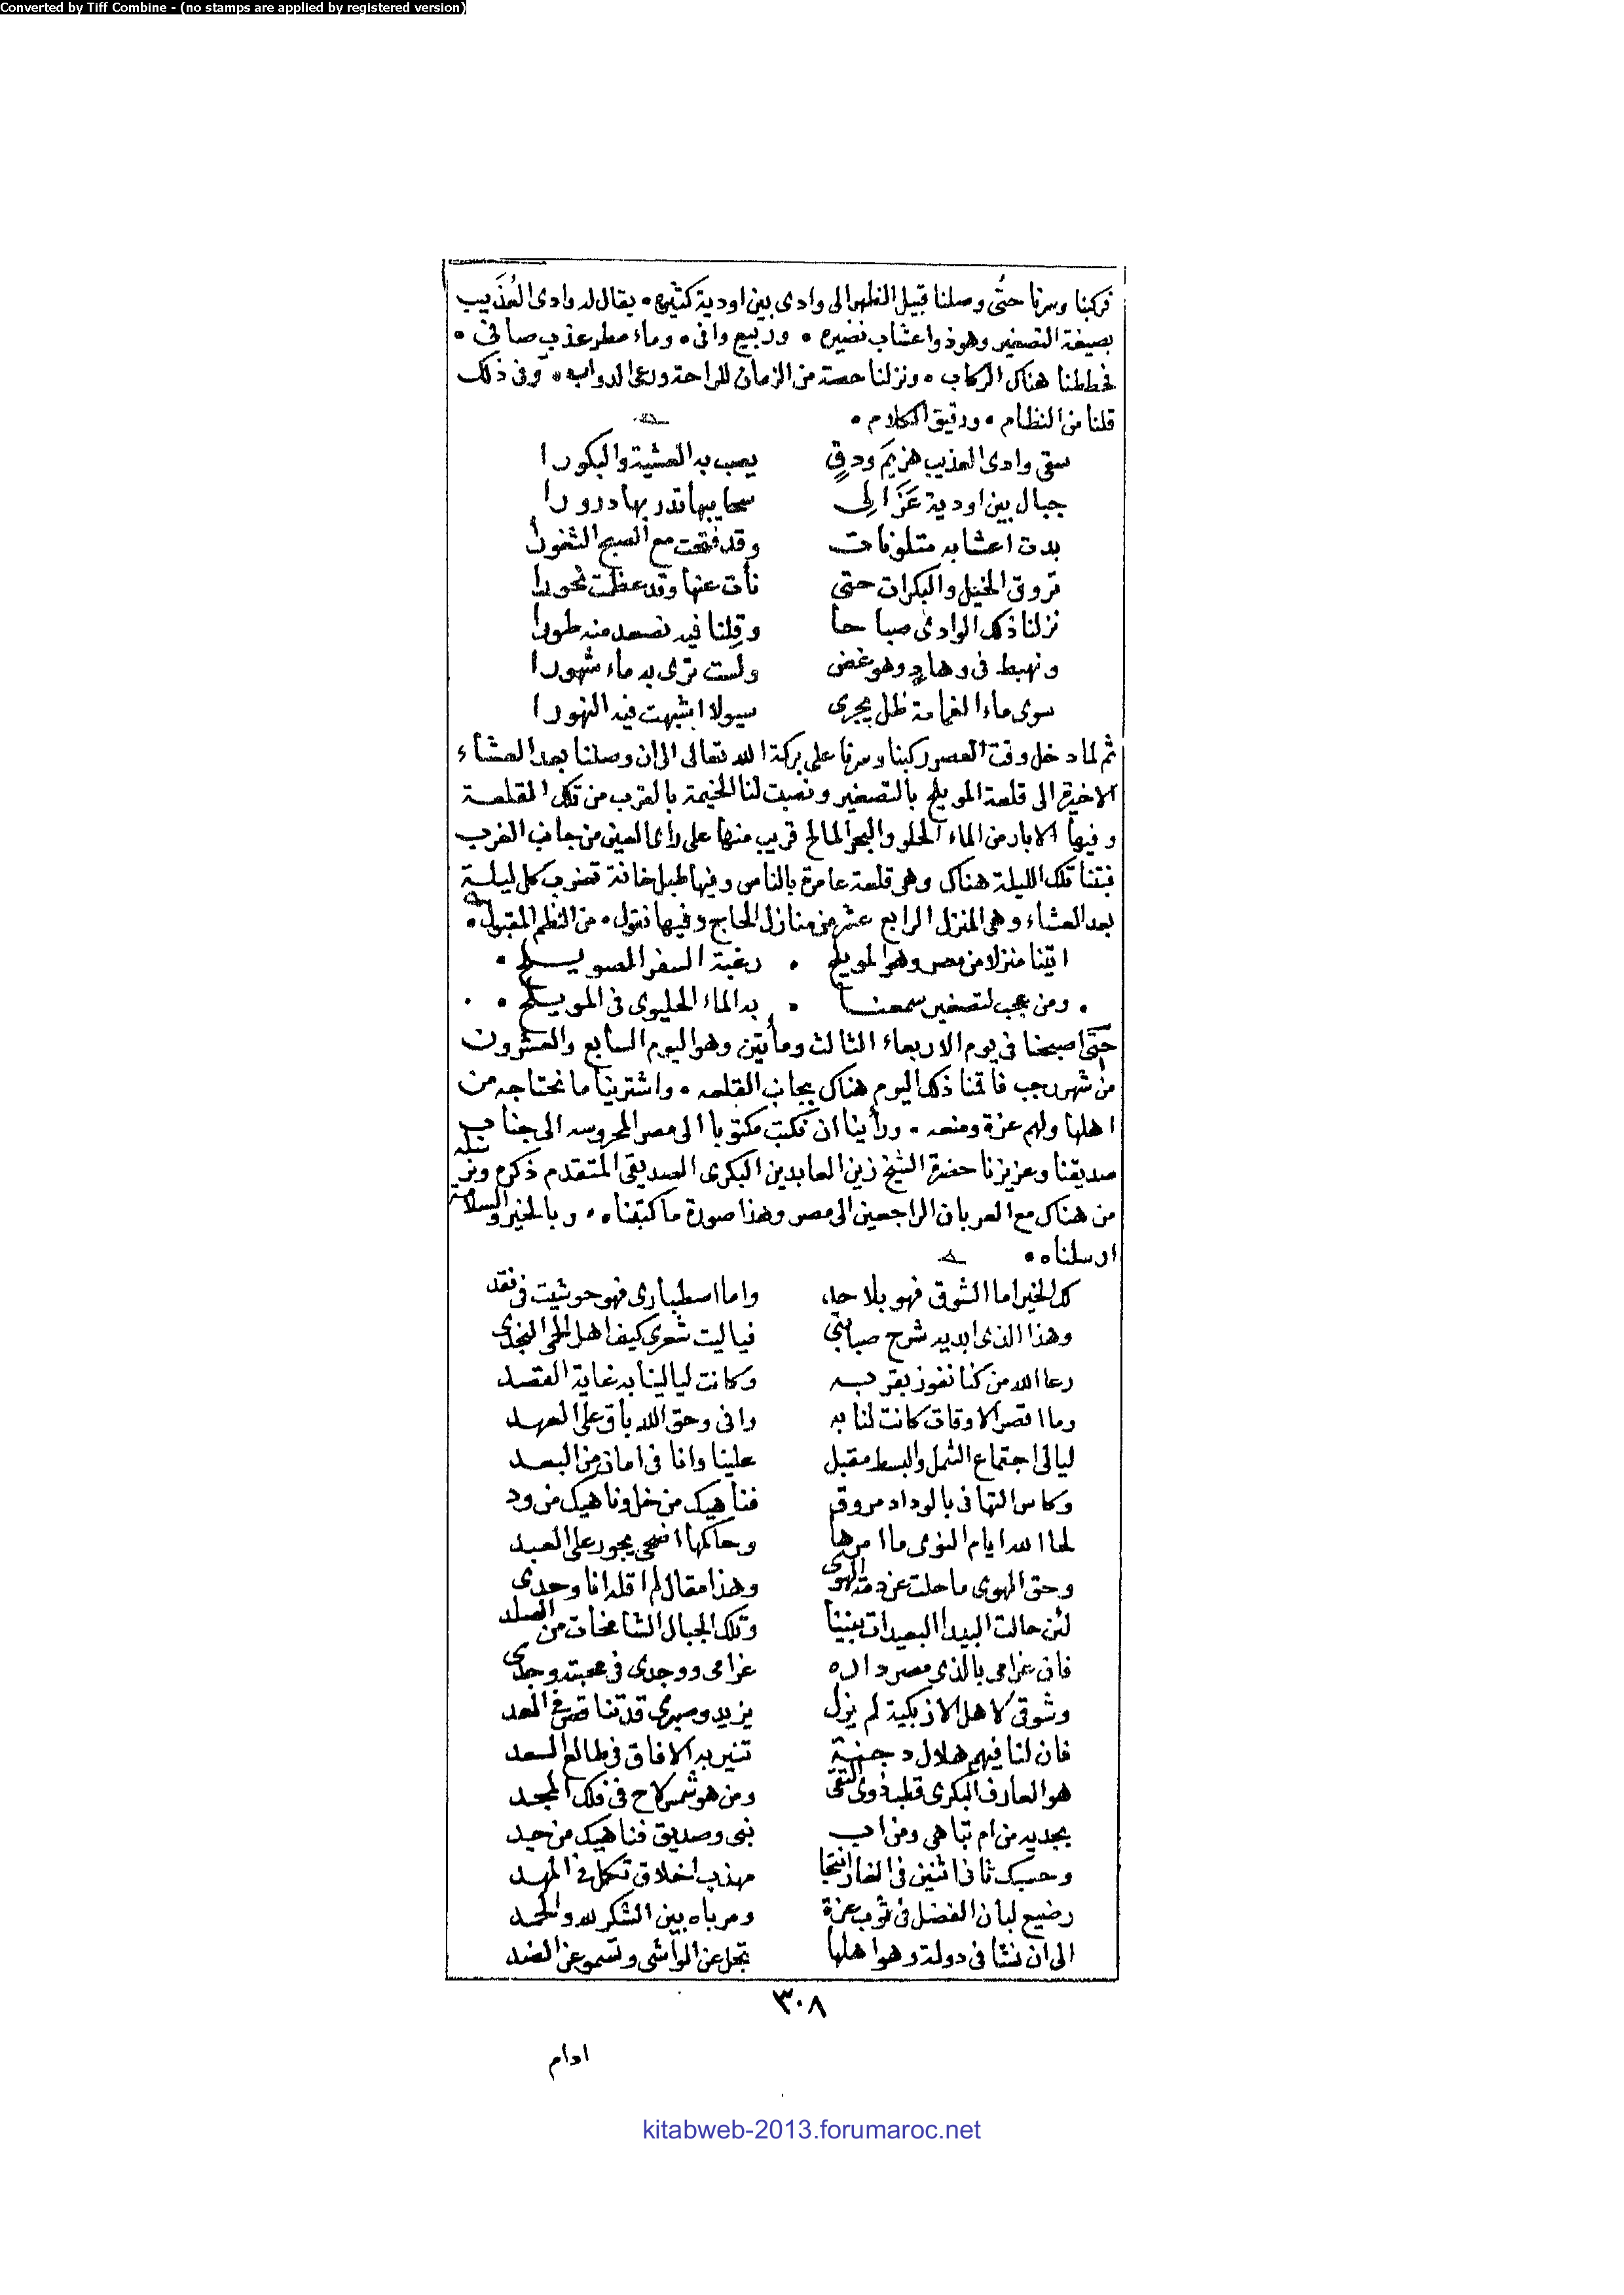 Converted by Tiff Combine - (no stamps are applied by registered version)
فركبنا وسرنا حتَّى وصلنا قبيل الظهر الى وادى بين اودية كثيره • يقال له وادى العُذَيب
بصيغة التصغير وهو ذو اعشاب نضيره • وربيع وافى • وماء مطر عذب صافى •
فحططنا هناك الركاب • ونزلنا حصة من الزمان للراحة ورعى الدواب • وفى ذلك
قلنا من النظام • ورقيق الكلام •
سقى وادى العذيب هزيمَ ودقٍ يصب به العشية والبكورا
جبال بين اودية عَزَالِى سحايبها تدر بها درورا
بدت اعشابه متلونات وقد فتحت مع الصبح الثغورا
تروق الخيل والبكرات حتى نأت عنها وقد عظمت نحورا
نزلنا ذلك الوادى صباحا وقِلنا فيه نصعد منه طورا
ونهبط فى وهادٍ وهو غض ولست ترى به ماء شهورا
سوى ماء الغمامة ظل يجرى سيولا اشبهت فيه النهورا
ثم لما دخل وقت العصر ركبنا وسرنا على بركة الله تعالى الى ان وصلنا بعد العشاء
الاخيرة الى قلعة المويلح بالتصغير ونصبت لنا الخيمة بالقرب من تلك القلعة
وفيها الابار من الماء الحلو والبحر المالح قريب منها على راى العين من جانب الغرب
فبتنا تلك الليلة هناك وهى قلعة عامرة بالناس وفيها طبل خانة تضرب كل ليلة
بعد العشاء وهى المنزل الرابع عشر من منازل الحاج وفيها نقول • من النظم المقبول •
اتينا منزلا من مصر وهو المويلح • رغبة السفر المصويلح •
• ومن عجب لتصغير سمعنا • بدالماء الحليوى فى المويلح • •
حتَّى اصبحنا فى يوم الاربعاء الثالث ومأتين وهو اليوم السابع والعشرون
من شهر رجب فاقمنا ذلك اليوم هناك بجانب القلعه • واشترينا ما نحتاجه من
اهلها ولهم عزة ومنعه • ورأينا ان نكتب مكتوبا الى مصر المحروسه الى جناب
صديقنا وعزيزنا حضرة الشيخ زين العابدين البكرى الصديقى المتقدم ذكره ونرسله
من هناك مع العربان الراجعين الى مصر وهذا صورة ما كتبناه • وبالخير والسلامة
ارسلناه •
لك الخير اما الشوق فهو بلا حد واما اصطبارى فهو حوشيت فى فقد
وهذا الذى ابديه شرح صبابتى فياليت شعرى كيف اهل الحمى النجدى
رعا الله من كنا نفوز بقربه وكانت ليالينا به غاية القصد
وما اقصر الاوقات كانت لنا به وانى وحق الله باق على العهد
ليالى اجتماع الشمل والبسط مقبل علينا وانا فى امان من البعد
وكاس التهانى بالوداد مروق فناهيك من خل وناهيك من ود
لحا الله ايام النوى ما امرها وحاكمها اضحى يجور على العبد
وحق الهوى ما حلت عن ذمة الهوى وهذا مقال لم اقله انا وحدى
لئن حالت البيدا البعيدات بيننا وتلك الجبال الشامخات من الصلد
فانى غرامى بالذى مصر داره غرامى ووجدى فى محبته وجدى
وشوقى لاهل الازبكية لم يزل يزيد وصبرى قد تناقص فى العد
فان لنا فيهم هلال دجنة تنير به الافاق فى طالع السعد
هو العارف البكرى قطب ذوى التقى ومن هو شمس لاح فى فلك المجد
بجديه من ام تباهى ومن اب نبى وصديق فناهيك من جد
وحسبك ثانى اثنين فى الغار انتجا مهذب اخلاق تكمل فى المهد
رضيع لبان الفضل فى ثوب عزة ومرباه بين الشكر لله والحمد
الى ان نشا فى دولة وهو اهلها تجل عن الواشى وتسمو عن الضد
٣٠٨
ادام
kitabweb-2013.forumaroc.net